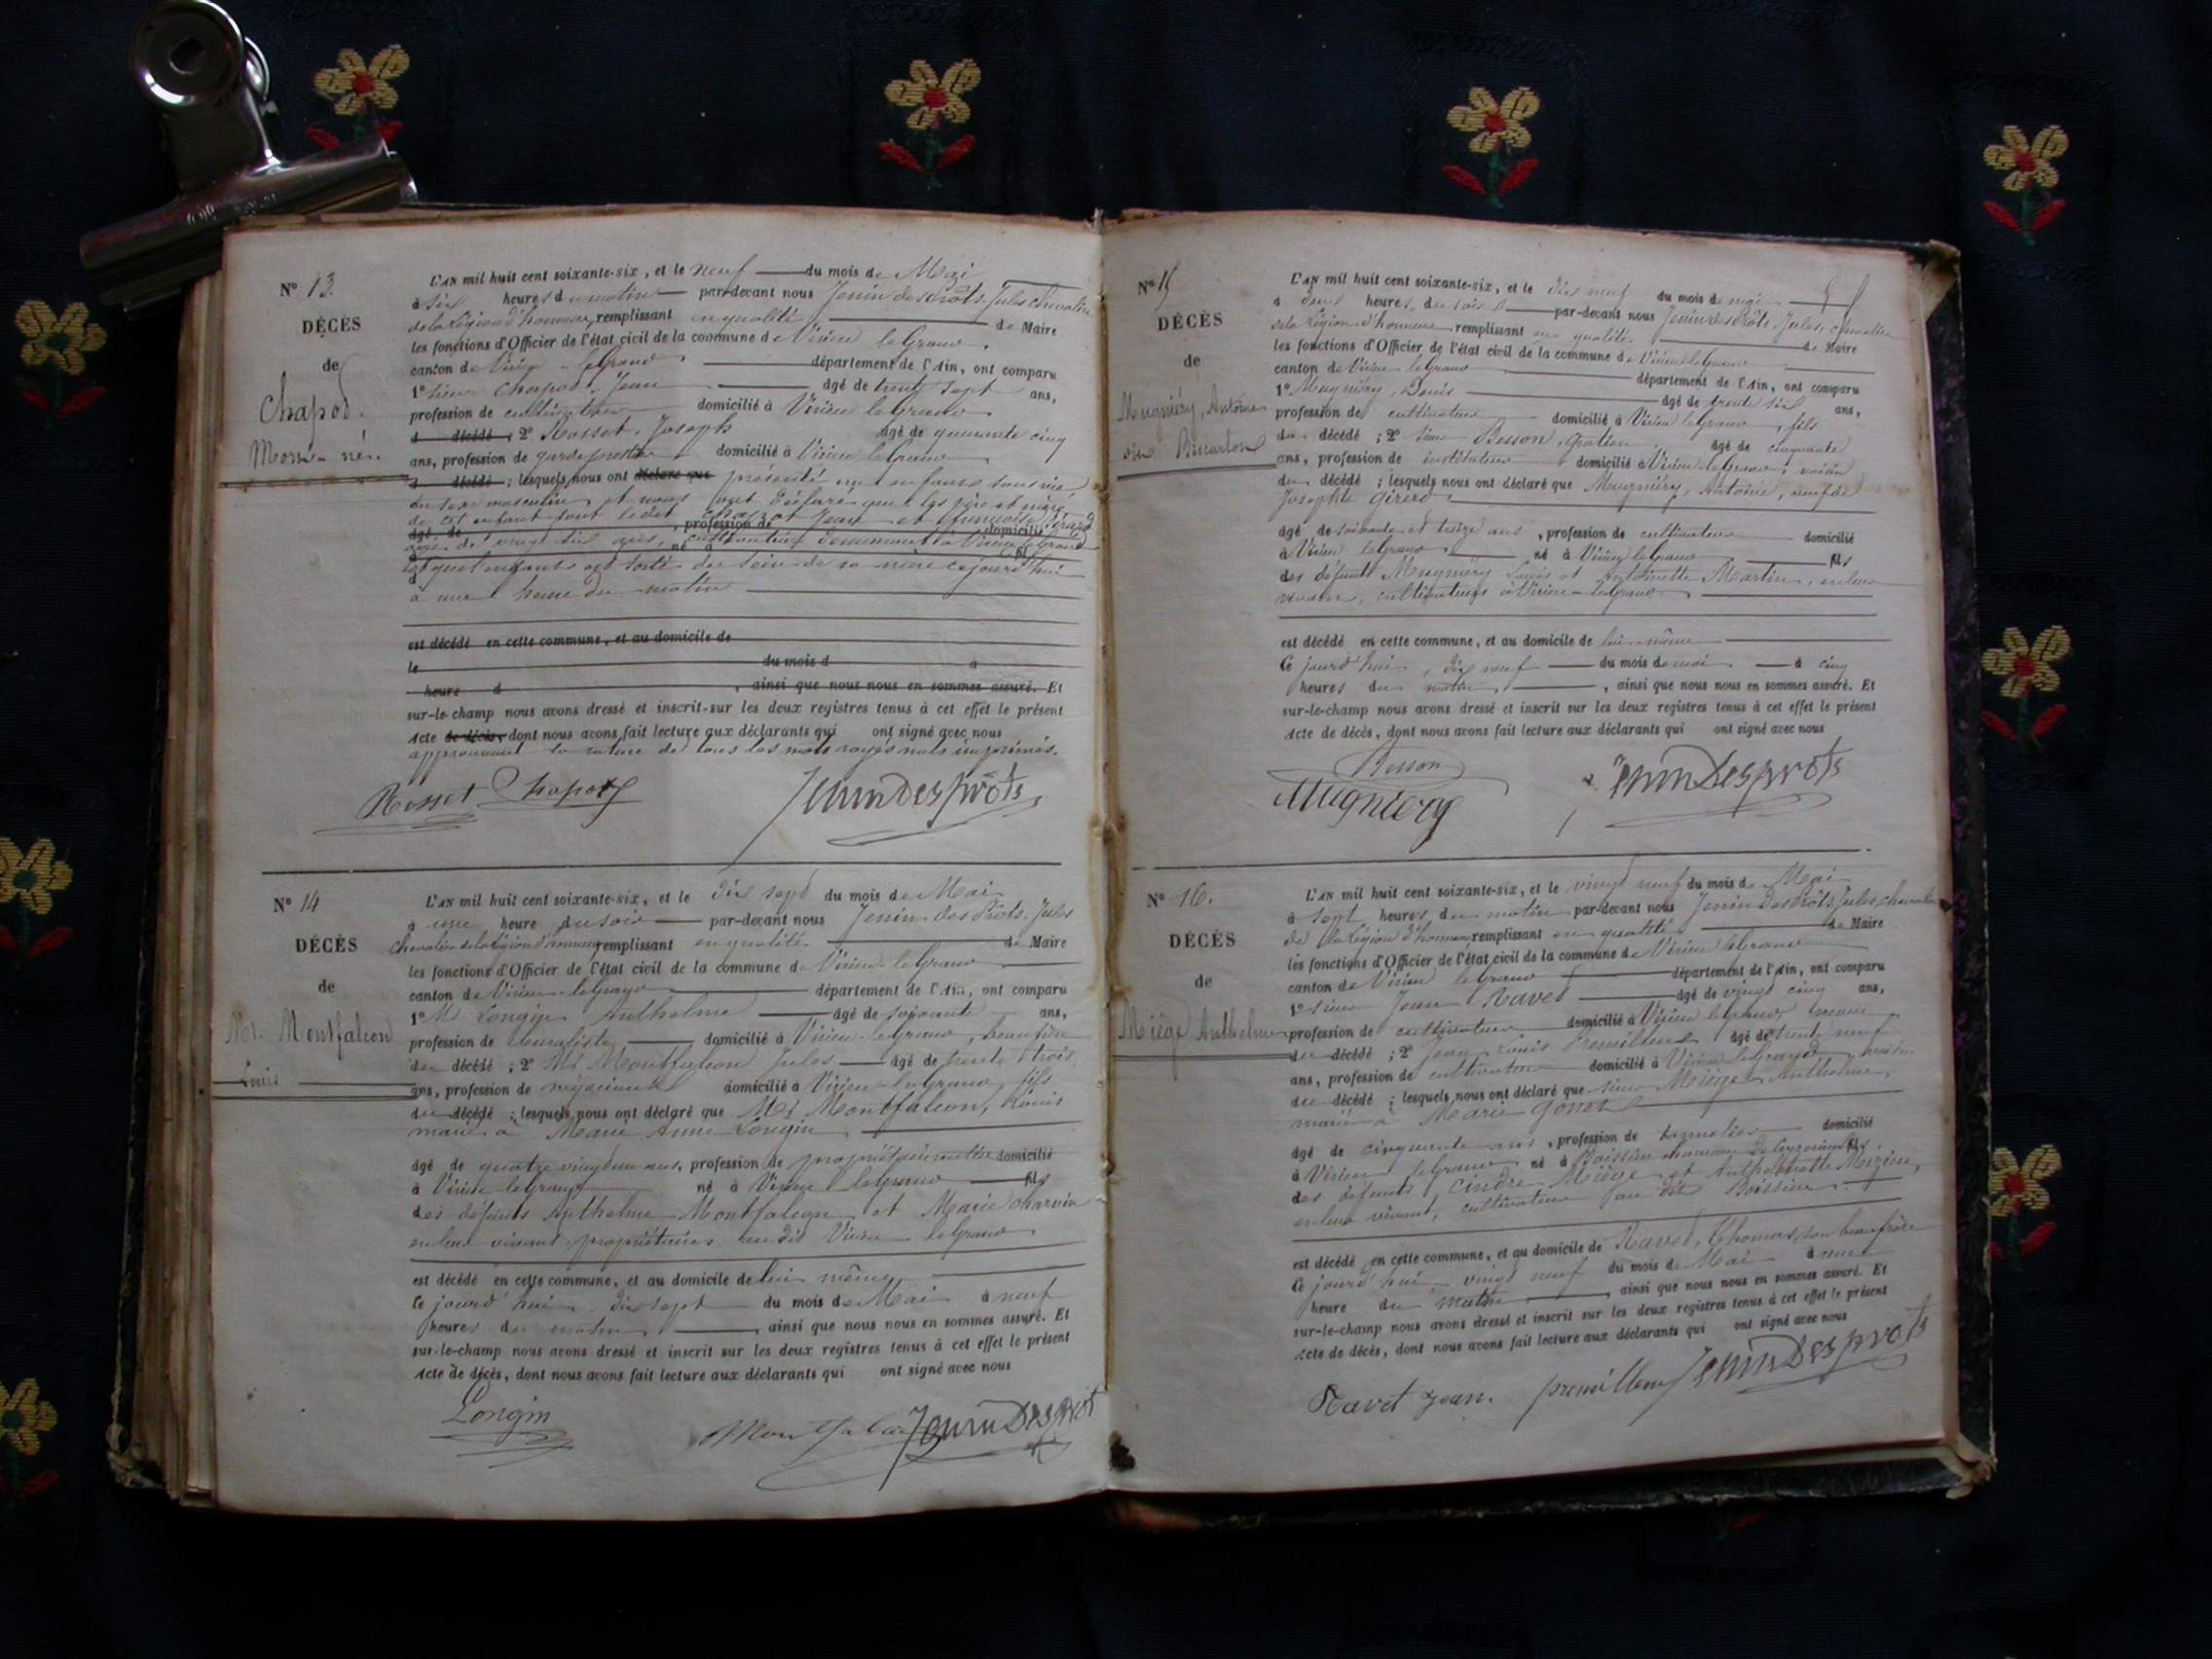 N° 13.
DÉCÈS
de
Chapod.
Mort-né.
L'AN mil huit cent soixante-six, et le neuf du mois de Mai
à six heures du matin par-devant nous Jenin des Prôts, Jules chevalier
de la Légion d'honneur, remplissant en qualité de Maire
les fonctions d'Officier de l'état civil de la commune de Virieu le Grand
canton de Virieu le Grand département de l'Ain, ont comparu
1° sieur Chapod, Jean âgé de trente sept ans,
profession de cultivateur domicilié à Virieu le Grand
d décédé ; 2° Rosset, Joseph âgé de quarante cinq
ans, profession de garde domicilié à Virieu le Grand
d décédé ; lesquels nous ont déclaré que présenté un enfant sans vie,
du sexe masculin, et nous ont déclaré que les père et mère
de cet enfant sont ledit Chapot Jean et
âgé de , profession de domicilié
âgée de vingt six ans, cultivateurs demeurant à Virieu le Grand
lequel enfant est sorti du sein de sa mère cejourd'hui
à une heure du matin
est décédé en cette commune, et au domicile de
le du mois d à
heure d , ainsi que nous nous en sommes assuré. Et
sur-le-champ nous avons dressé et inscrit sur les deux registres tenus à cet effet le présent
Acte de décès, dont nous avons fait lecture aux déclarants qui ont signé avec nous
approuvant la rature de tous les mots rayés nuls imprimés.
Rosset Chapot Jenin Des prôts
N° 14
DÉCÈS
de
Mr. Montfalcon
Louis
L'AN mil huit cent soixante-six, et le dix sept du mois de Mai
à une heure du soir par-devant nous Jenin des Prôts, Jules
chevalier de la Légion d'honneur remplissant en qualité de Maire
les fonctions d'Officier de l'état civil de la commune de Virieu le Grand
canton de Virieu le Grand département de l'Ain, ont comparu
1° Mr Longin Anthelme âgé de soixante ans,
profession de domicilié à Virieu le Grand, beau frère
du décédé ; 2° Mr Montfalcon Jules âgé de trente trois
ans, profession de négociant domicilié à Virieu le Grand, fils
du décédé ; lesquels nous ont déclaré que Mr Montfalcon, Louis
marié à Marie Anne Longin
âgé de quatre vingt un ans, profession de propriétaire domicilié
à Virieu le Grand né à Virieu le Grand fils
des défunts Anthelme Montfalcon et Marie Charvin
en leur vivant propriétaires audit Virieu le Grand
est décédé en cette commune, et au domicile de lui même
Ce jourd'hui dix sept du mois de Mai à neuf
heures du matin , ainsi que nous nous en sommes assuré. Et
sur-le-champ nous avons dressé et inscrit sur les deux registres tenus à cet effet le présent
Acte de décès, dont nous avons fait lecture aux déclarants qui ont signé avec nous
Longin Montfalcon Jenin Des prôt
N° 15
DÉCÈS
de
Mugniéry, Antoine
L'AN mil huit cent soixante-six, et le dix neuf du mois de mai
à deux heures du soir par-devant nous Jenin des Prôts, Jules, chevalier
de la Légion d'honneur remplissant en qualité de Maire
les fonctions d'Officier de l'état civil de la commune de Virieu le Grand
canton de Virieu le Grand département de l'Ain, ont comparu
1° Mugniéry, Denis âgé de trente six ans,
profession de cultivateur domicilié à Virieu le Grand, fils
du décédé ; 2° sieur Besson, Gratien âgé de cinquante
ans, profession de instituteur domicilié à Virieu le Grand, voisin
du décédé ; lesquels nous ont déclaré que Mugniéry, Antoine, veuf de
Josephte Girerd
âgé de soixante et treize ans, profession de cultivateur domicilié
à Virieu le Grand , né à Virieu le Grand fils
des défunts Mugniéry Louis et Antoinette Martin, en leur
vivant, cultivateurs à Virieu le Grand
est décédé en cette commune, et au domicile de lui-même
Ce jourd'hui, dix neuf du mois de mai à cinq
heures du matin , ainsi que nous nous en sommes assuré. Et
sur-le-champ nous avons dressé et inscrit sur les deux registres tenus à cet effet le présent
Acte de décès, dont nous avons fait lecture aux déclarants qui ont signé avec nous
Besson
Mugniery Jenin Des prots
N° 16.
DÉCÈS
de
Miège Anthelme
L'AN mil huit cent soixante-six, et le vingt neuf du mois de Mai
à sept heures du matin par-devant nous Jenin des Prôts, Jules, chevalier
de la Légion d'honneur remplissant en qualité de Maire
les fonctions d'Officier de l'état civil de la commune de Virieu le Grand
canton de Virieu le Grand département de l'Ain, ont comparu
1° sieur Jean Ravet âgé de vingt cinq ans,
profession de cultivateur domicilié à Virieu le Grand neveu
du décédé ; 2° Jean Louis Premillieu âgé de trente neuf
ans, profession de cultivateur domicilié à Virieu le Grand, voisin
du décédé ; lesquels nous ont déclaré que sieur Miège Anthelme,
marié à Marie Gonet
âgé de cinquante ans, profession de tonnelier domicilié
à Virieu le Grand né à Poissieu fils
des défunts Miège et Anthelmette
en leur vivant, cultivateurs au dit Poissieu
est décédé en cette commune, et au domicile de Ravet, Thomas, son beau frère
Ce jourd'hui vingt neuf du mois de Mai à une
heure du matin , ainsi que nous nous en sommes assuré. Et
sur-le-champ nous avons dressé et inscrit sur les deux registres tenus à cet effet le présent
Acte de décès, dont nous avons fait lecture aux déclarants qui ont signé avec nous
Ravet Jean. premillieu Jenin Des prots